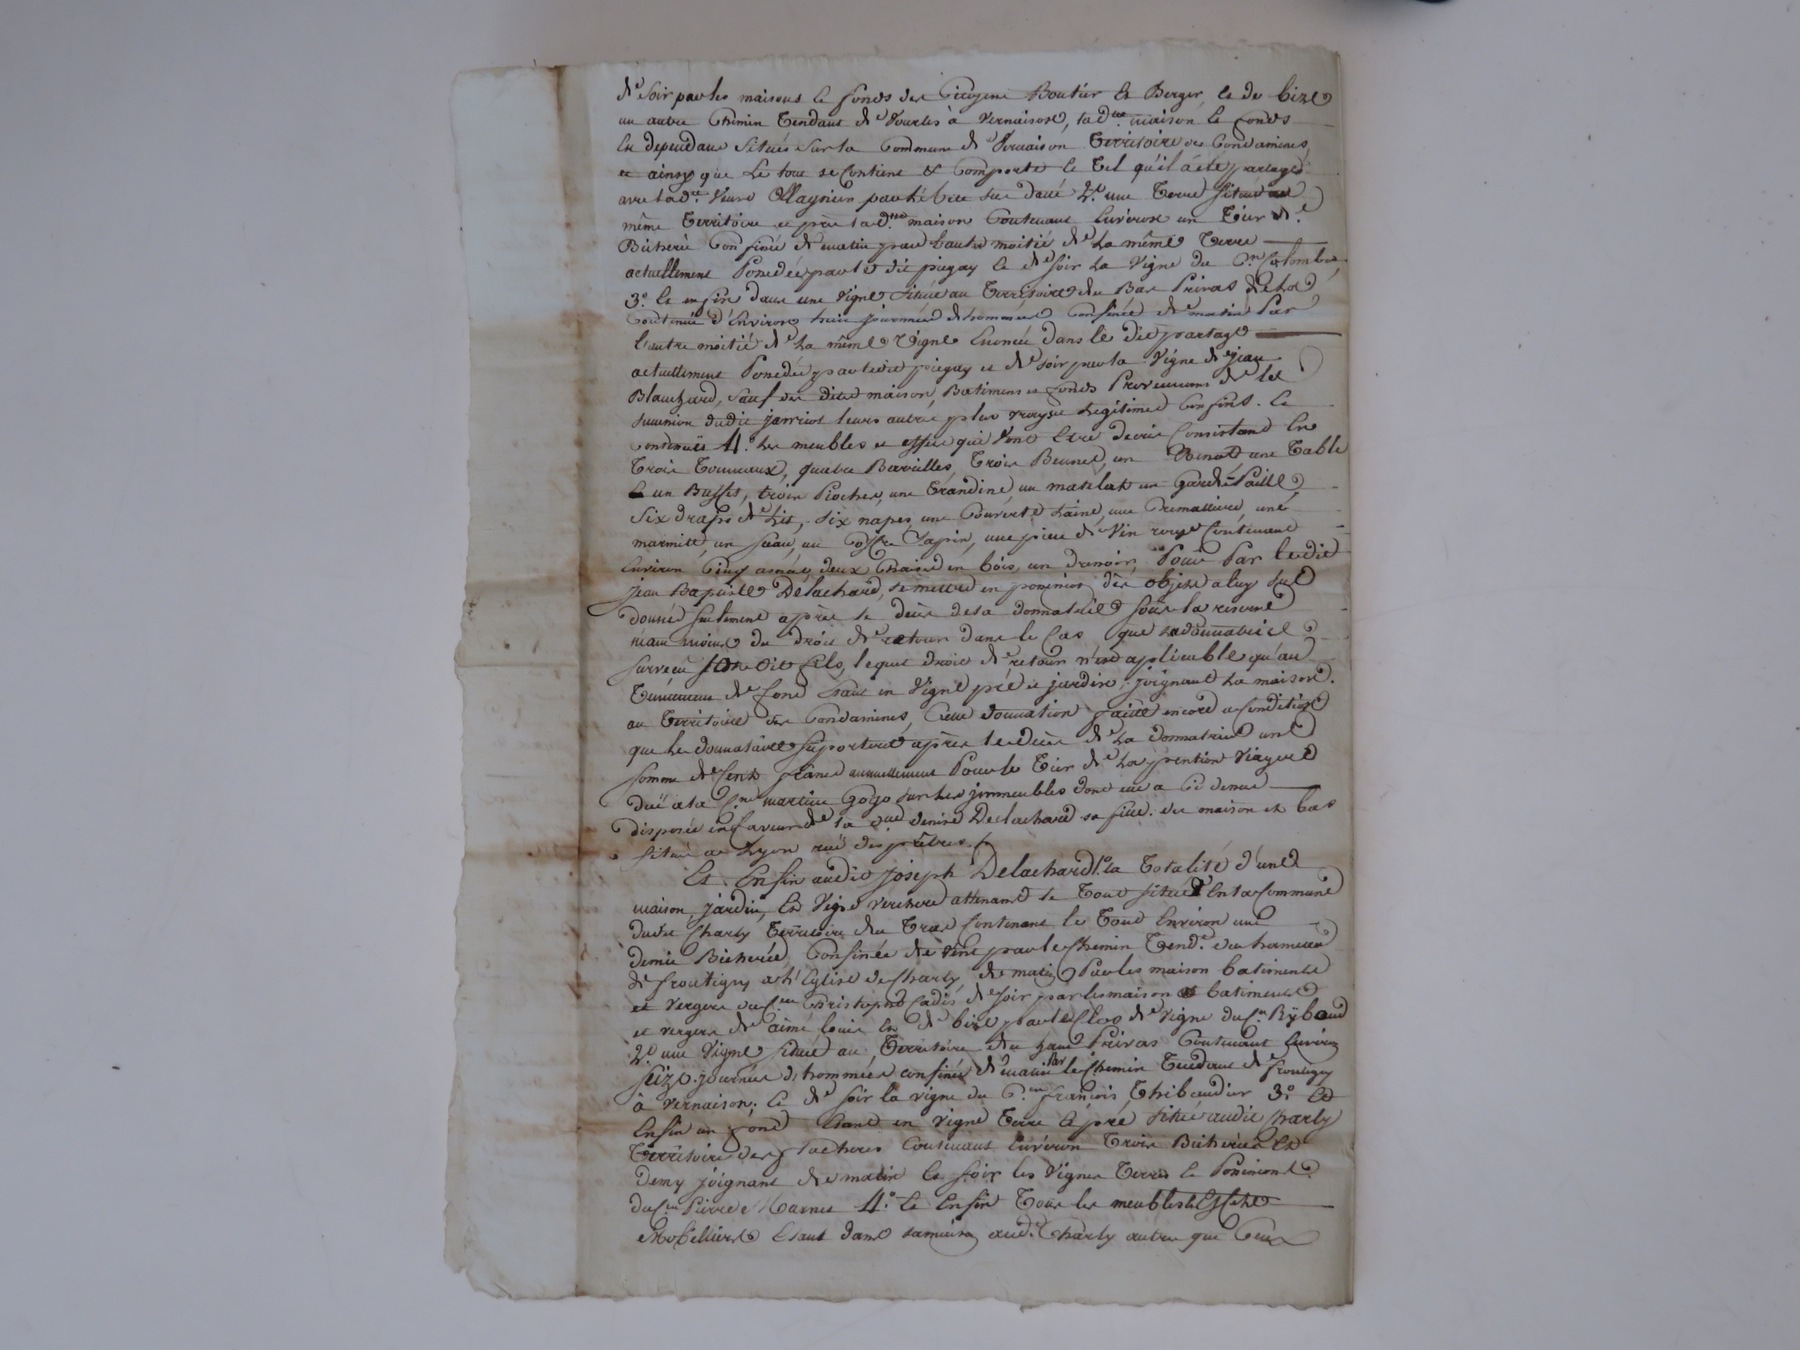 de soir par les maisons et fonds des Citoyens Boutier et Berger, et de bize
un autre Chemin tendant de Vourles à Vernaison, lad.te maison et fonds
en dependans situés sur la Commune de Vernaison territoire des Condamines,
et ainsy que le tout se contient et comporte et tel qu'il a été partagé
avec lad.e veuve 2.° une terre située au
même territoire et près lad.te maison contenant environ un tier de
Bicherée confinée de matin par l'autre moitié de la même terre
actuellement possedée par led dit piegay et de soir la vigne du C.en Colombet,
3.° et enfin dans une vigne située au territoire du Bas Privas de la
contenue d'environ huit journées d'hommes confinée de matin par
l'autre moitié de la même vigne enoncée dans le dit partage
actuellement possedée par ledit piegay et de soir par la vigne de jean
Blanchard, sauf des dites maison, Batimens et fonds provenans de la
sucession dudit janriot leurs autres plus vrays et legitimes confins. Et
continuë 4.° les meubles et effets qui vont etre decrit consistant en
trois tonneaux, quatre Barrilles, trois Bennes, un une table
et un Buffet, trois pioches, une un matelat un garde-paille,
six draps de lit, six napes, une couverte laine, une cremalliere, une
marmitte, un seau, un coffre sapin, une piece de vin rouge contenant
environ cinq anées, deux chaises en bois, un dressoir, pour par ledit
jean Baptiste Delachard, se mettre en possession des objets a luy sus
donnés seulement après le decès de sa donnatrice sous la reserve
neanmoins du droit de retour dans le cas que la donnatrice
survecu son dit fils, lequel droit de retour n'est aplicable qu'au
tenement de fond etant en vigne pré et jardin, joignant la maison.
au territoire des Condamines, cette donnation faite encore a condition
que le donnataire suportera après le decès de la donnatrice une
somme de cent francs annuellement pour le tier de la pention viagere
duë a la C.ne martine gojo sur les jmmeubles dont elle a ci devant
disposée en faveur de la C.ne denise Delachard sa fille. des maison et bas
situé a Lyon ruë des prêtres./.
Et enfin audit joseph Delachard 1.° la totalité d'une
maison, jardin, et vigne verchere attenant le tout situé en la Commune
dudit Charly territoire du contenant le tout environ une
demie Bicherée, confinée de vent par le chemin tend.t du hameau
de frontigny a l'Eglise de Charly, de matin par les maison batiments
et vergers du C.en Christophe de soir par les maison et batiments
et vergers de aimé louis et de bize par le clos de vigne du C.en Rÿbaud
2.° une vigne située au territoire du haut Privas contenant environ
seize journées d'hommées confinée de matin par le chemin tendant de frontigny
à Vernaison, et de soir la vigne du C.en françois Thibaudier 3.° Et
enfin un fond etant en vigne terre et pré situé audit Charly
territoire des flacheres contenant environ trois Bicherées et
demy joignant de matin et soir les vignes terres et possessions
du C.en Pierre 4.° Et enfin tous les meubles et effets
mobilliers etant dans sa maison aud.t Charly autres que ceux